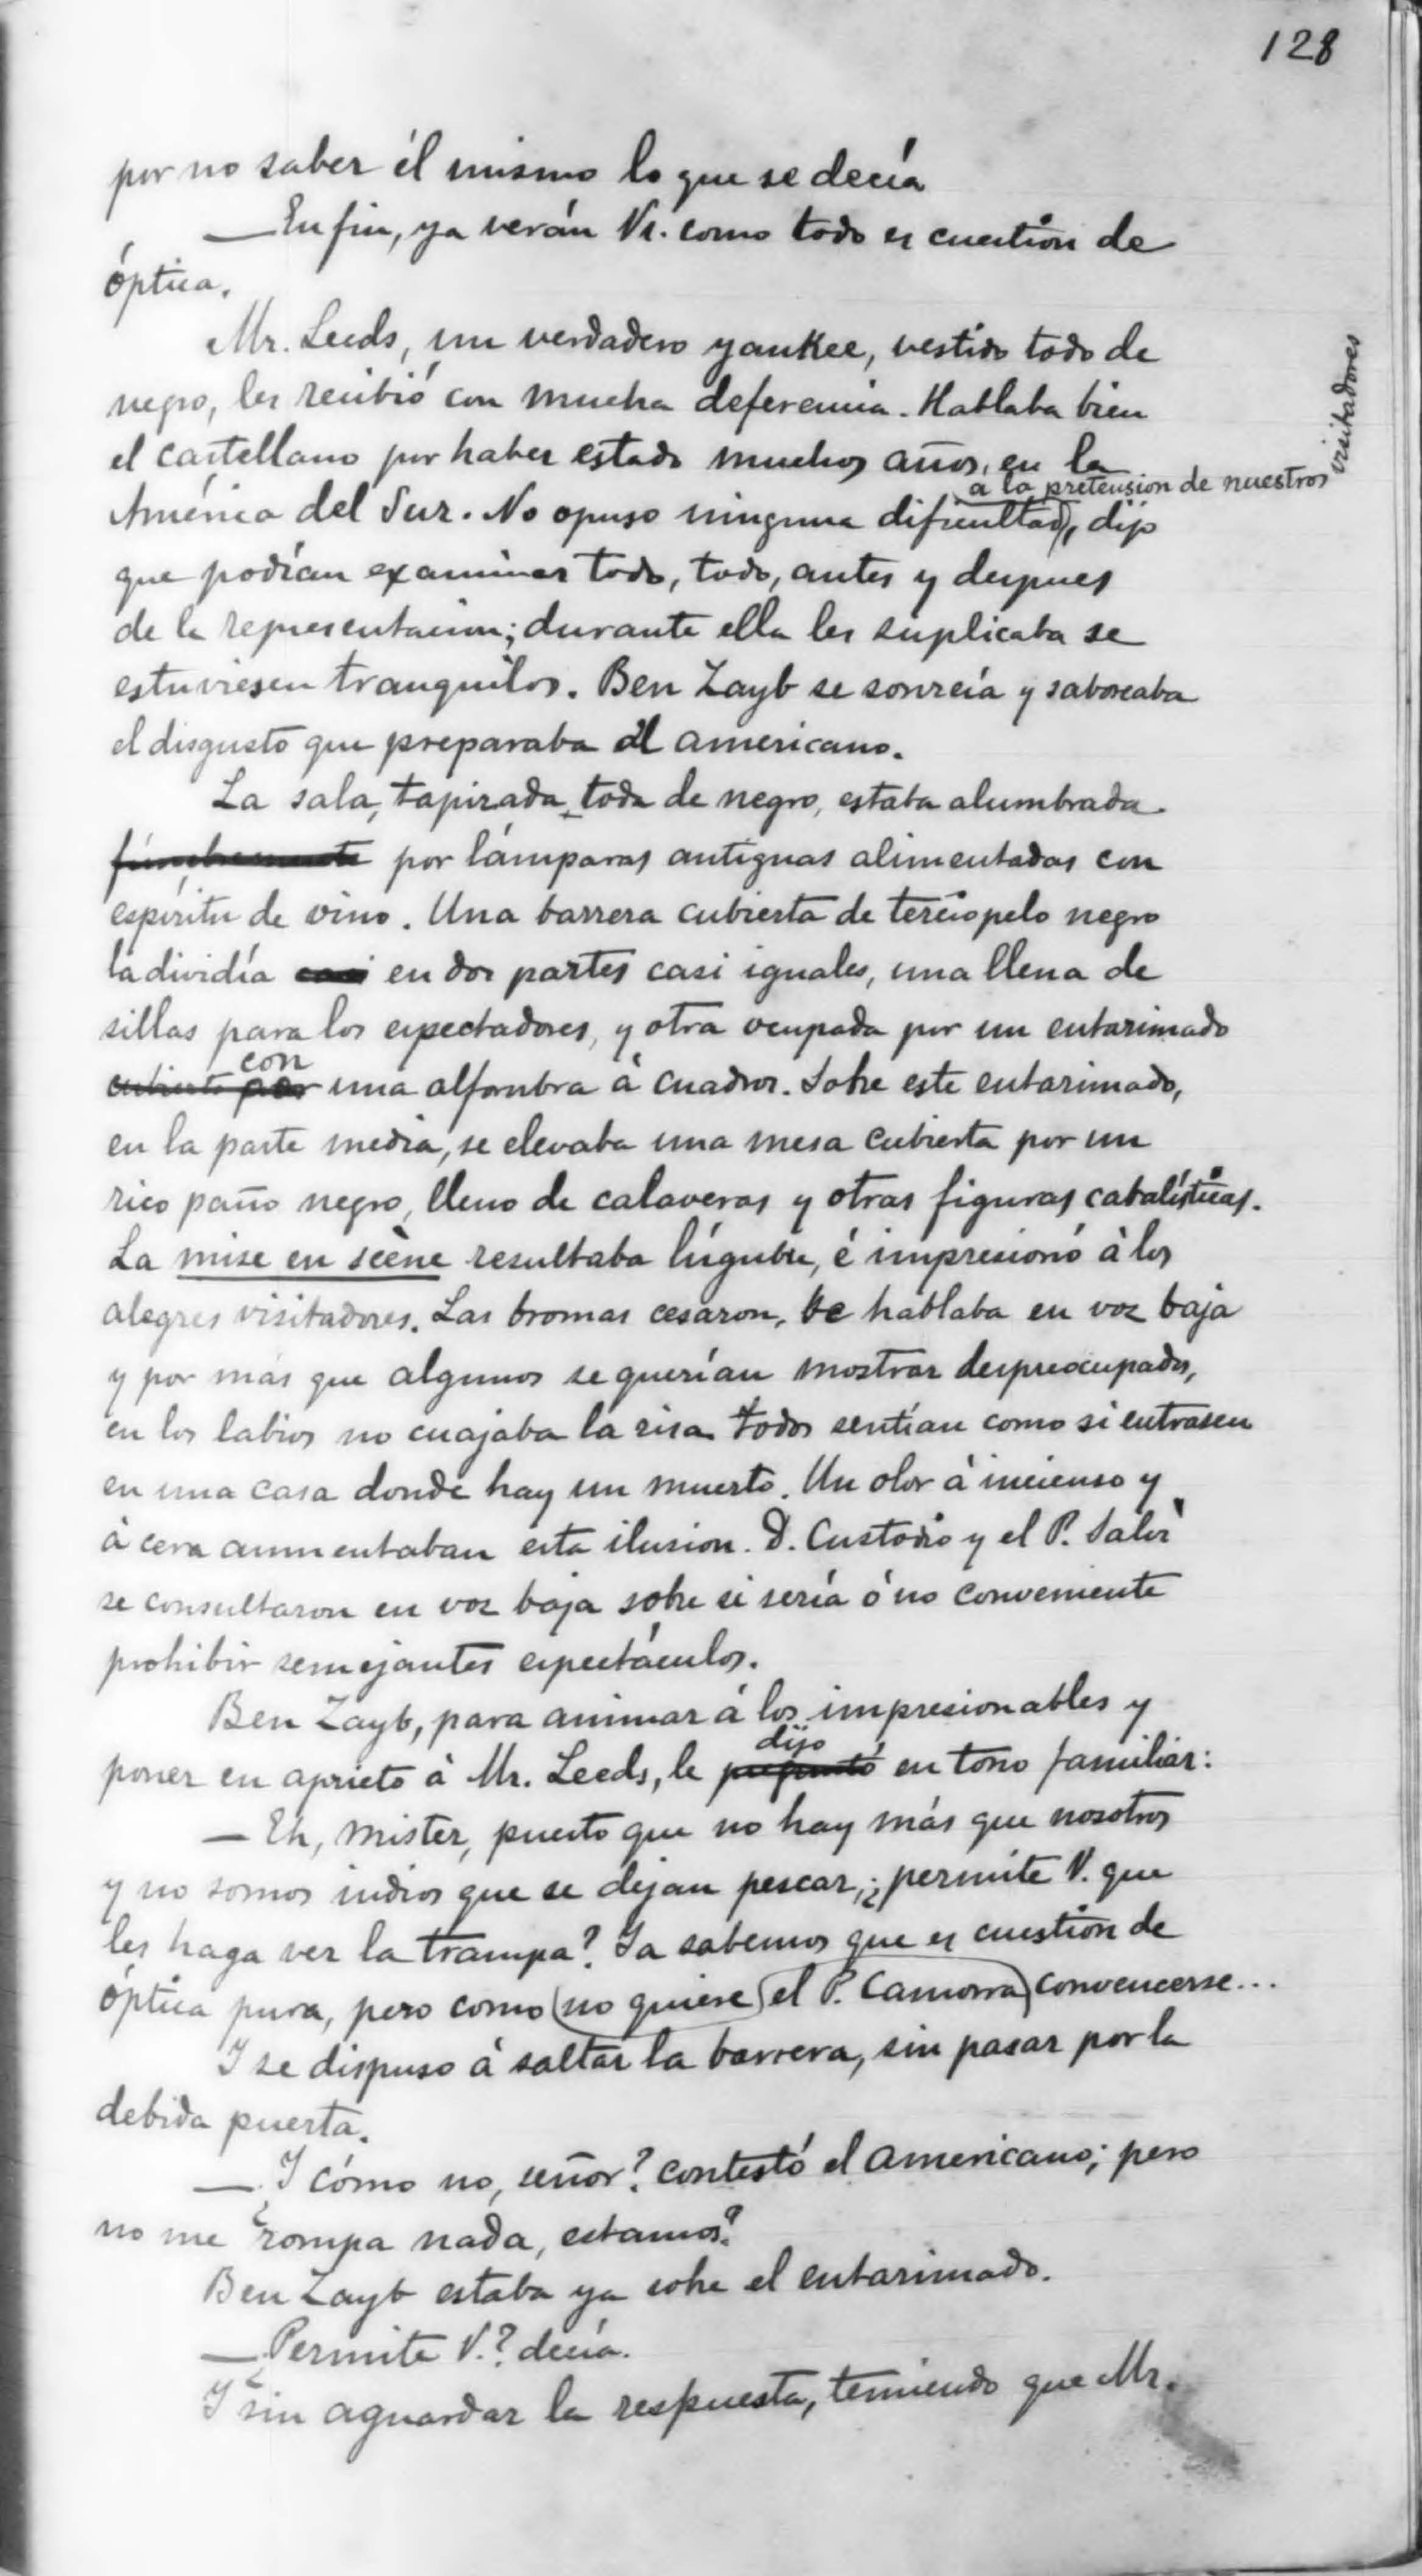 128
por no saber él mismo lo que se decía
—En fin, ya verán Vs. como todo es cuestión de
óptica.
Mr. Leeds, un verdadero yankee, vestido todo de
negro, les recibió con mucha deferencia. Hablaba bien
el castellano por haber estado muchos años en la
a la pretension de nuestros visitadores
América del Sur. No opuso ninguna dificultad, dijo
que podían examinar todo, todo, antes y despues
de la representacion; durante ella les suplicaba se
estuviesen tranquilos. Ben Zayb se sonreía y saboreaba
el disgusto que preparaba al americano.
La sala, tapizada toda de negro, estaba alumbrada
fúnebremente por lámparas antiguas alimentadas con
espíritu de vino. Una barrera cubierta de terciopelo negro
la dividía casi en dos partes casi iguales, una llena de
sillas para los espectadores, y otra ocupada por un entarimado
con
cubierto por una alfombra à cuadros. Sobre este entarimado,
en la parte media, se elevaba una mesa cubierta por un
rico paño negro, lleno de calaveras y otras figuras cabalísticas.
La mise en scène resultaba lúgubre, é impresionó à los
alegres visitadores. Las bromas cesaron, se hablaba en voz baja
y por más que algunos se querían mostrar despreocupados,
en los labios no cuajaba la risa. Todos sentían como si entrasen
en una casa donde hay un muerto. Un olor à incienso y
à cera aumentaban esta ilusion. D. Custodio y el P. Salví
se consultaron en voz baja sobre si sería ó no conveniente
prohibir semejantes espectáculos.
Ben Zayb, para animar á los impresionables y
dijo
poner en aprieto à Mr. Leeds, le preguntó en tono familiar:
— Eh, mister, puesto que no hay más que nosotros
y no somos indios que se dejan pescar, ¿permite V. que
les haga ver la trampa? Ya sabemos que es cuestión de
óptica pura, pero como no quiere el P. Camorra convencerse...
Y se dispuso á saltar la barrera, sin pasar por la
debida puerta.
— ¿Y cómo no, señor? contestó el americano; pero
no me rompa nada, estamos?
Ben Zayb estaba ya sobre el entarimado.
— ¿Permite V.? decía.
Y sin aguardar la respuesta, temiendo que Mr.